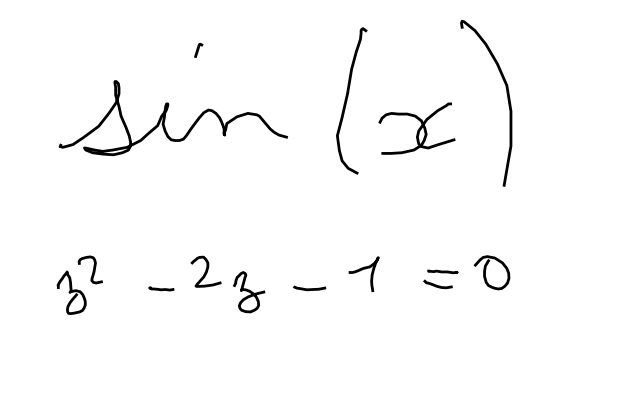 sin(x)
z² - 2z - 1 = 0